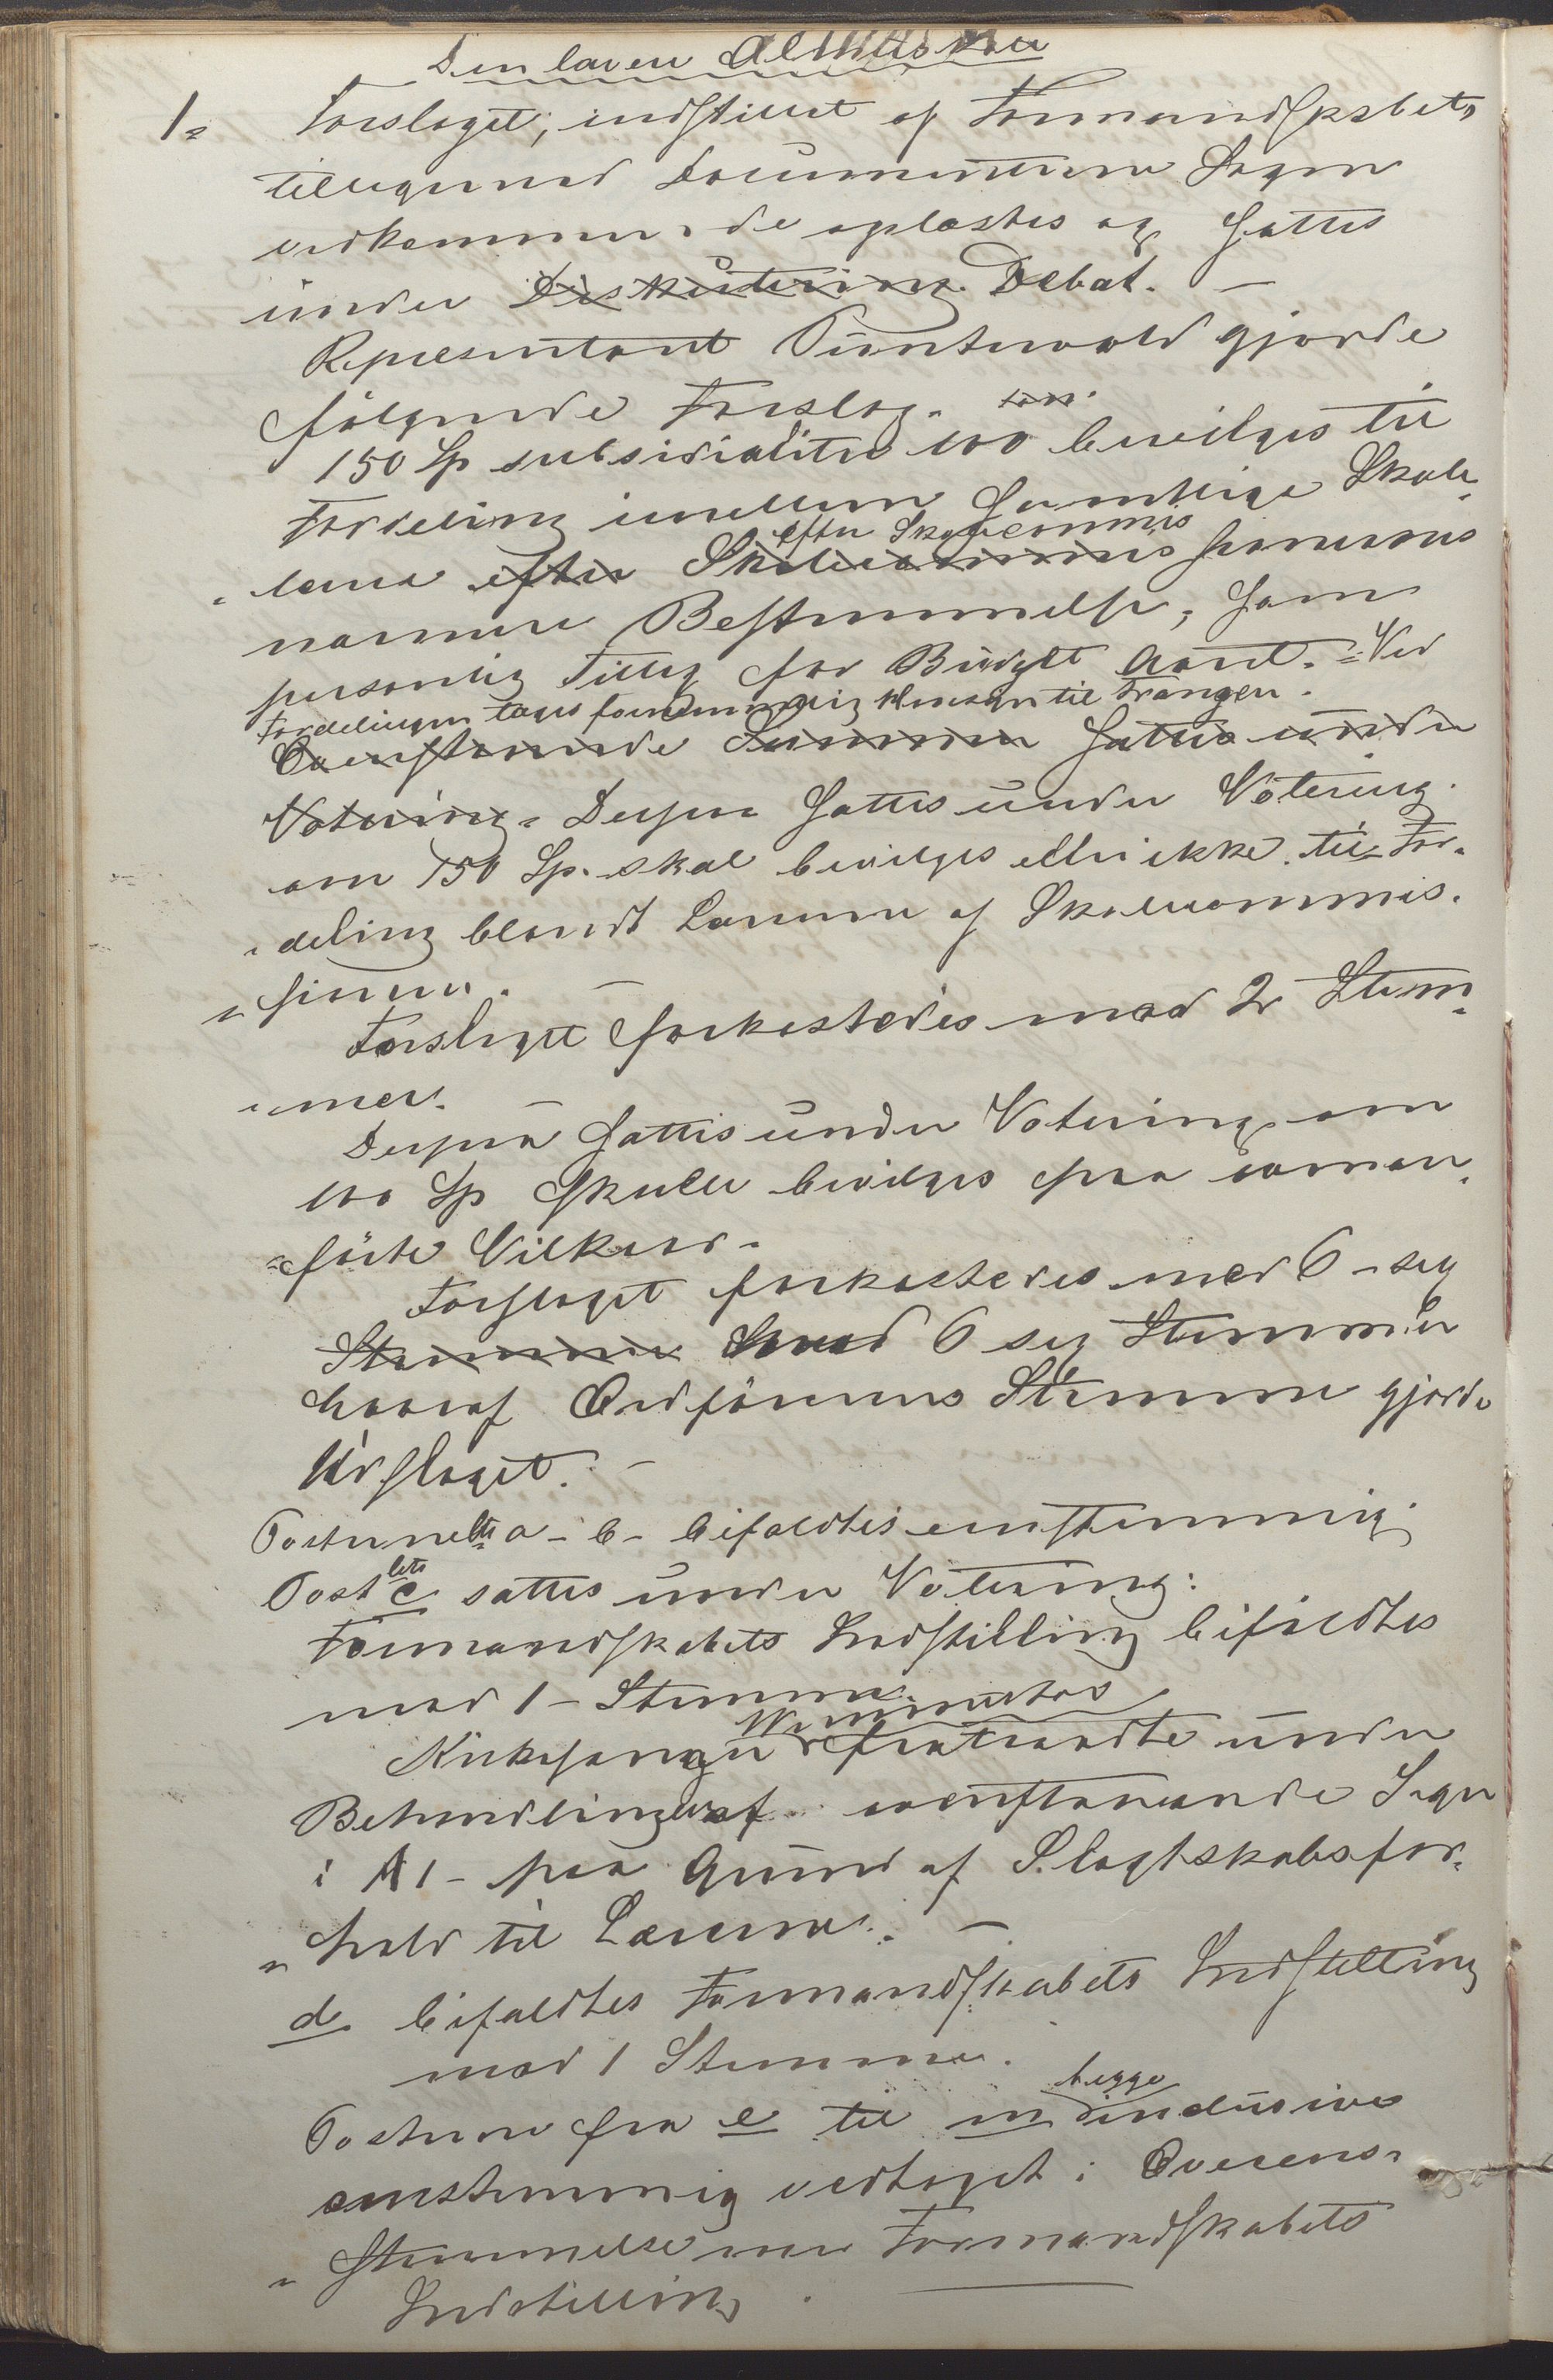 Den lavere Almueskole
1= Forslaget, indstillet af Formandskabets
tilligemed Documenterne Sagen
vedkommende oplæstes og sattes
under Diskutering Debat. —
Repræsentant Puntervold gjorde
følgende Forslag.
150 Sp subsidialiter 100 bevilges til
Fordeling imellem samtlige Skole-
lærere efter Skolecommis efter Skolecommissionens
nærmere Bestemmelse, som
personlig Tillæg for Budget Aaret. = Ved
Fordelingen tages fornemmelig Hensyn til Trangen.
Ovenstaaende Summer sattes under
Votering. Derpaa sattes under Votering
om 150 Sp. skal bevilges eller ikke til For-
deling blandt Lærerne af Skolecommis-
sionen. —
Forslaget forkastedes mod 2 Stem-
mer. —
Derpaa sattes under Votering om
100 Sp skulle bevilges paa ovenan-
førte Vilkaar.
Forslaget forkastedes med 6 - sex
Stemmer mod 6 sex Stemmer
hvoraf Ordførerens Stemme gjorde
Udslaget. —
Posterne litr a - b - bifaldtes enstemmig
Post litr c sattes under Votering:
Formandskabets Indstilling bifaldtes
mod 1 - Stemme.
Kirkesanger fratraadte under
Behandlingen af ovenstaaende Sager
i A 1 - paa Grund af Slægtskabsfor-
hold til Lærerne. —
d. bifaldtes Formandskabets Indstilling
mod 1 Stemme.
Posterne fra e til m begge inclusive
enstemmig vedtaget i Overens-
stemmelse med Formandskabets
Indstilling.